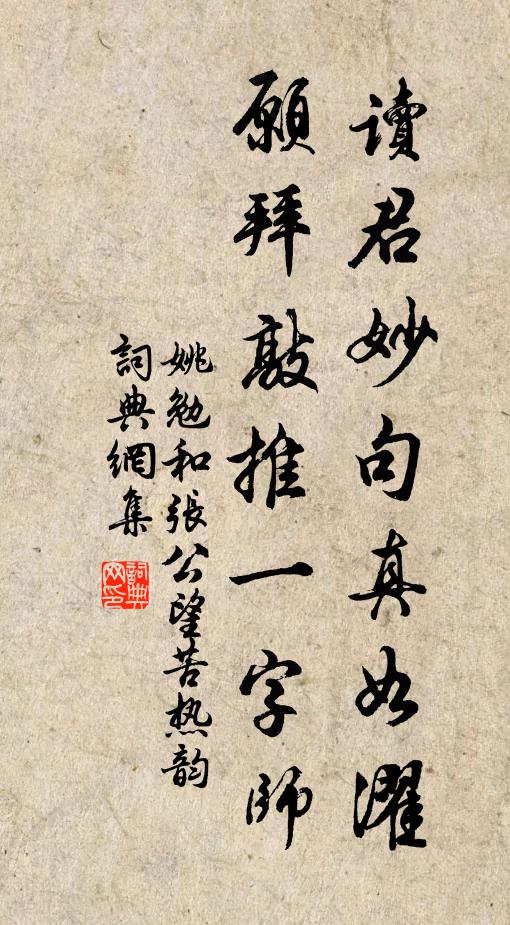 讀君妙句真如濯
願拜敲推一字師
姚勉和張公望苦热韵
詞典網集
詞典网印